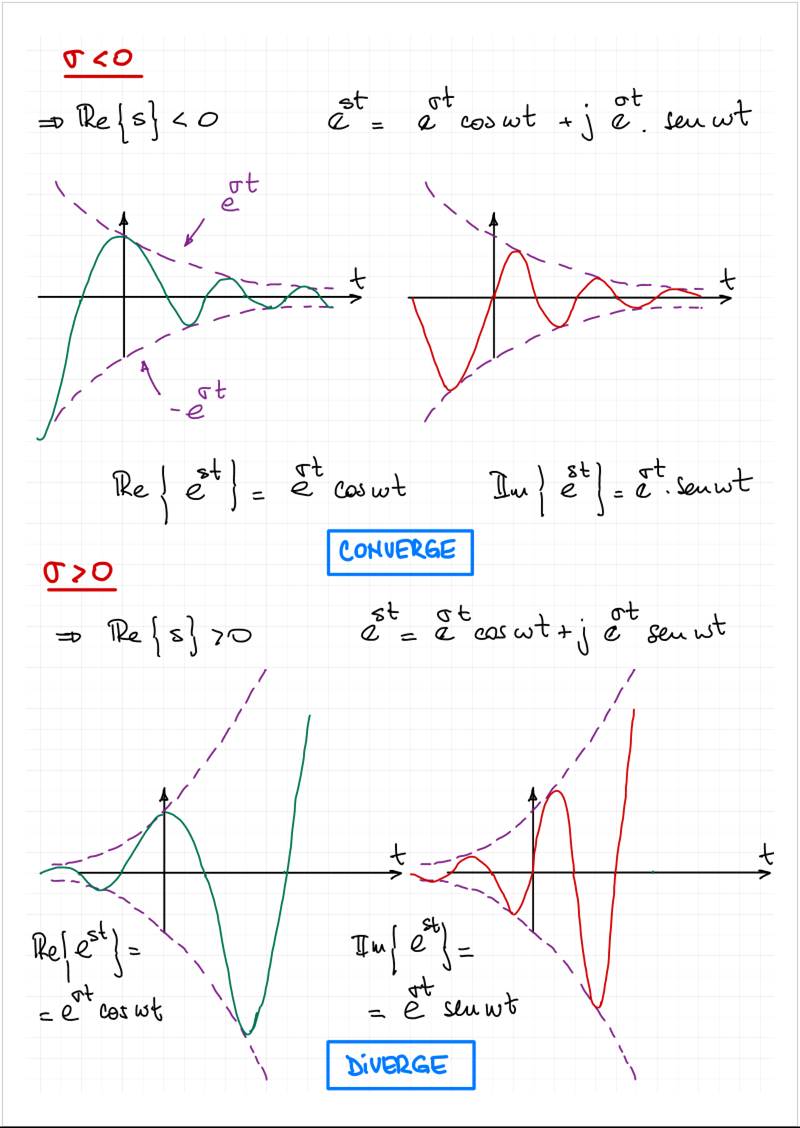 σ < 0
⇒ ℝe{s} < 0 e^{st} = e^{σt} cos ωt + j e^{σt} · sen ωt
e^{σt}
t t
-e^{σt}
ℝe{e^{st}} = e^{σt} cos ωt 𝕀m{e^{st}} = e^{σt} · sen ωt
CONVERGE
σ > 0
⇒ ℝe{s} > 0 e^{st} = e^{σt} cos ωt + j e^{σt} sen ωt
t t
ℝe{e^{st}} = 𝕀m{e^{st}} =
= e^{σt} cos ωt = e^{σt} sen ωt
DiVERGE